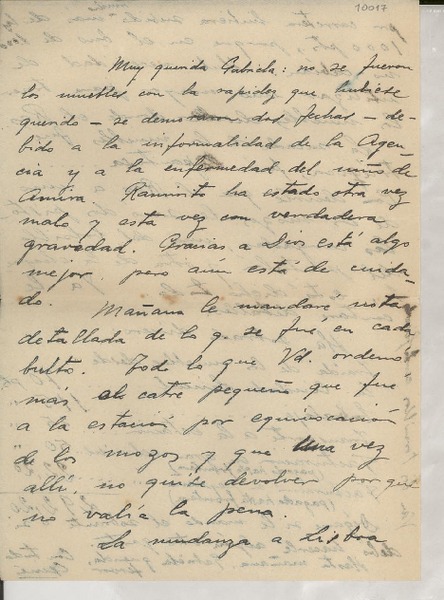 10017
Muy querida Gabriela: no se fueron
los muebles con la rapidez que hubiese
querido – se demoraron dos fechas – de-
bido a la informalidad de la Agen-
cia y a la enfermedad del niño de
Amira. Ramirito ha estado otra vez
malo y esta vez con verdadera
gravedad. Gracias a Dios está algo
mejor, pero aún está de cuida-
do.
Mañana le mandaré nota
detallada de lo q. se fué en cada
bulto. Todo lo que Vd. ordenó
más el catre pequeño que fue
a la estación por equivocación
de los mozos y que una vez
allí, no quise devolver porque
no valía la pena.
La mudanza a Lisboa